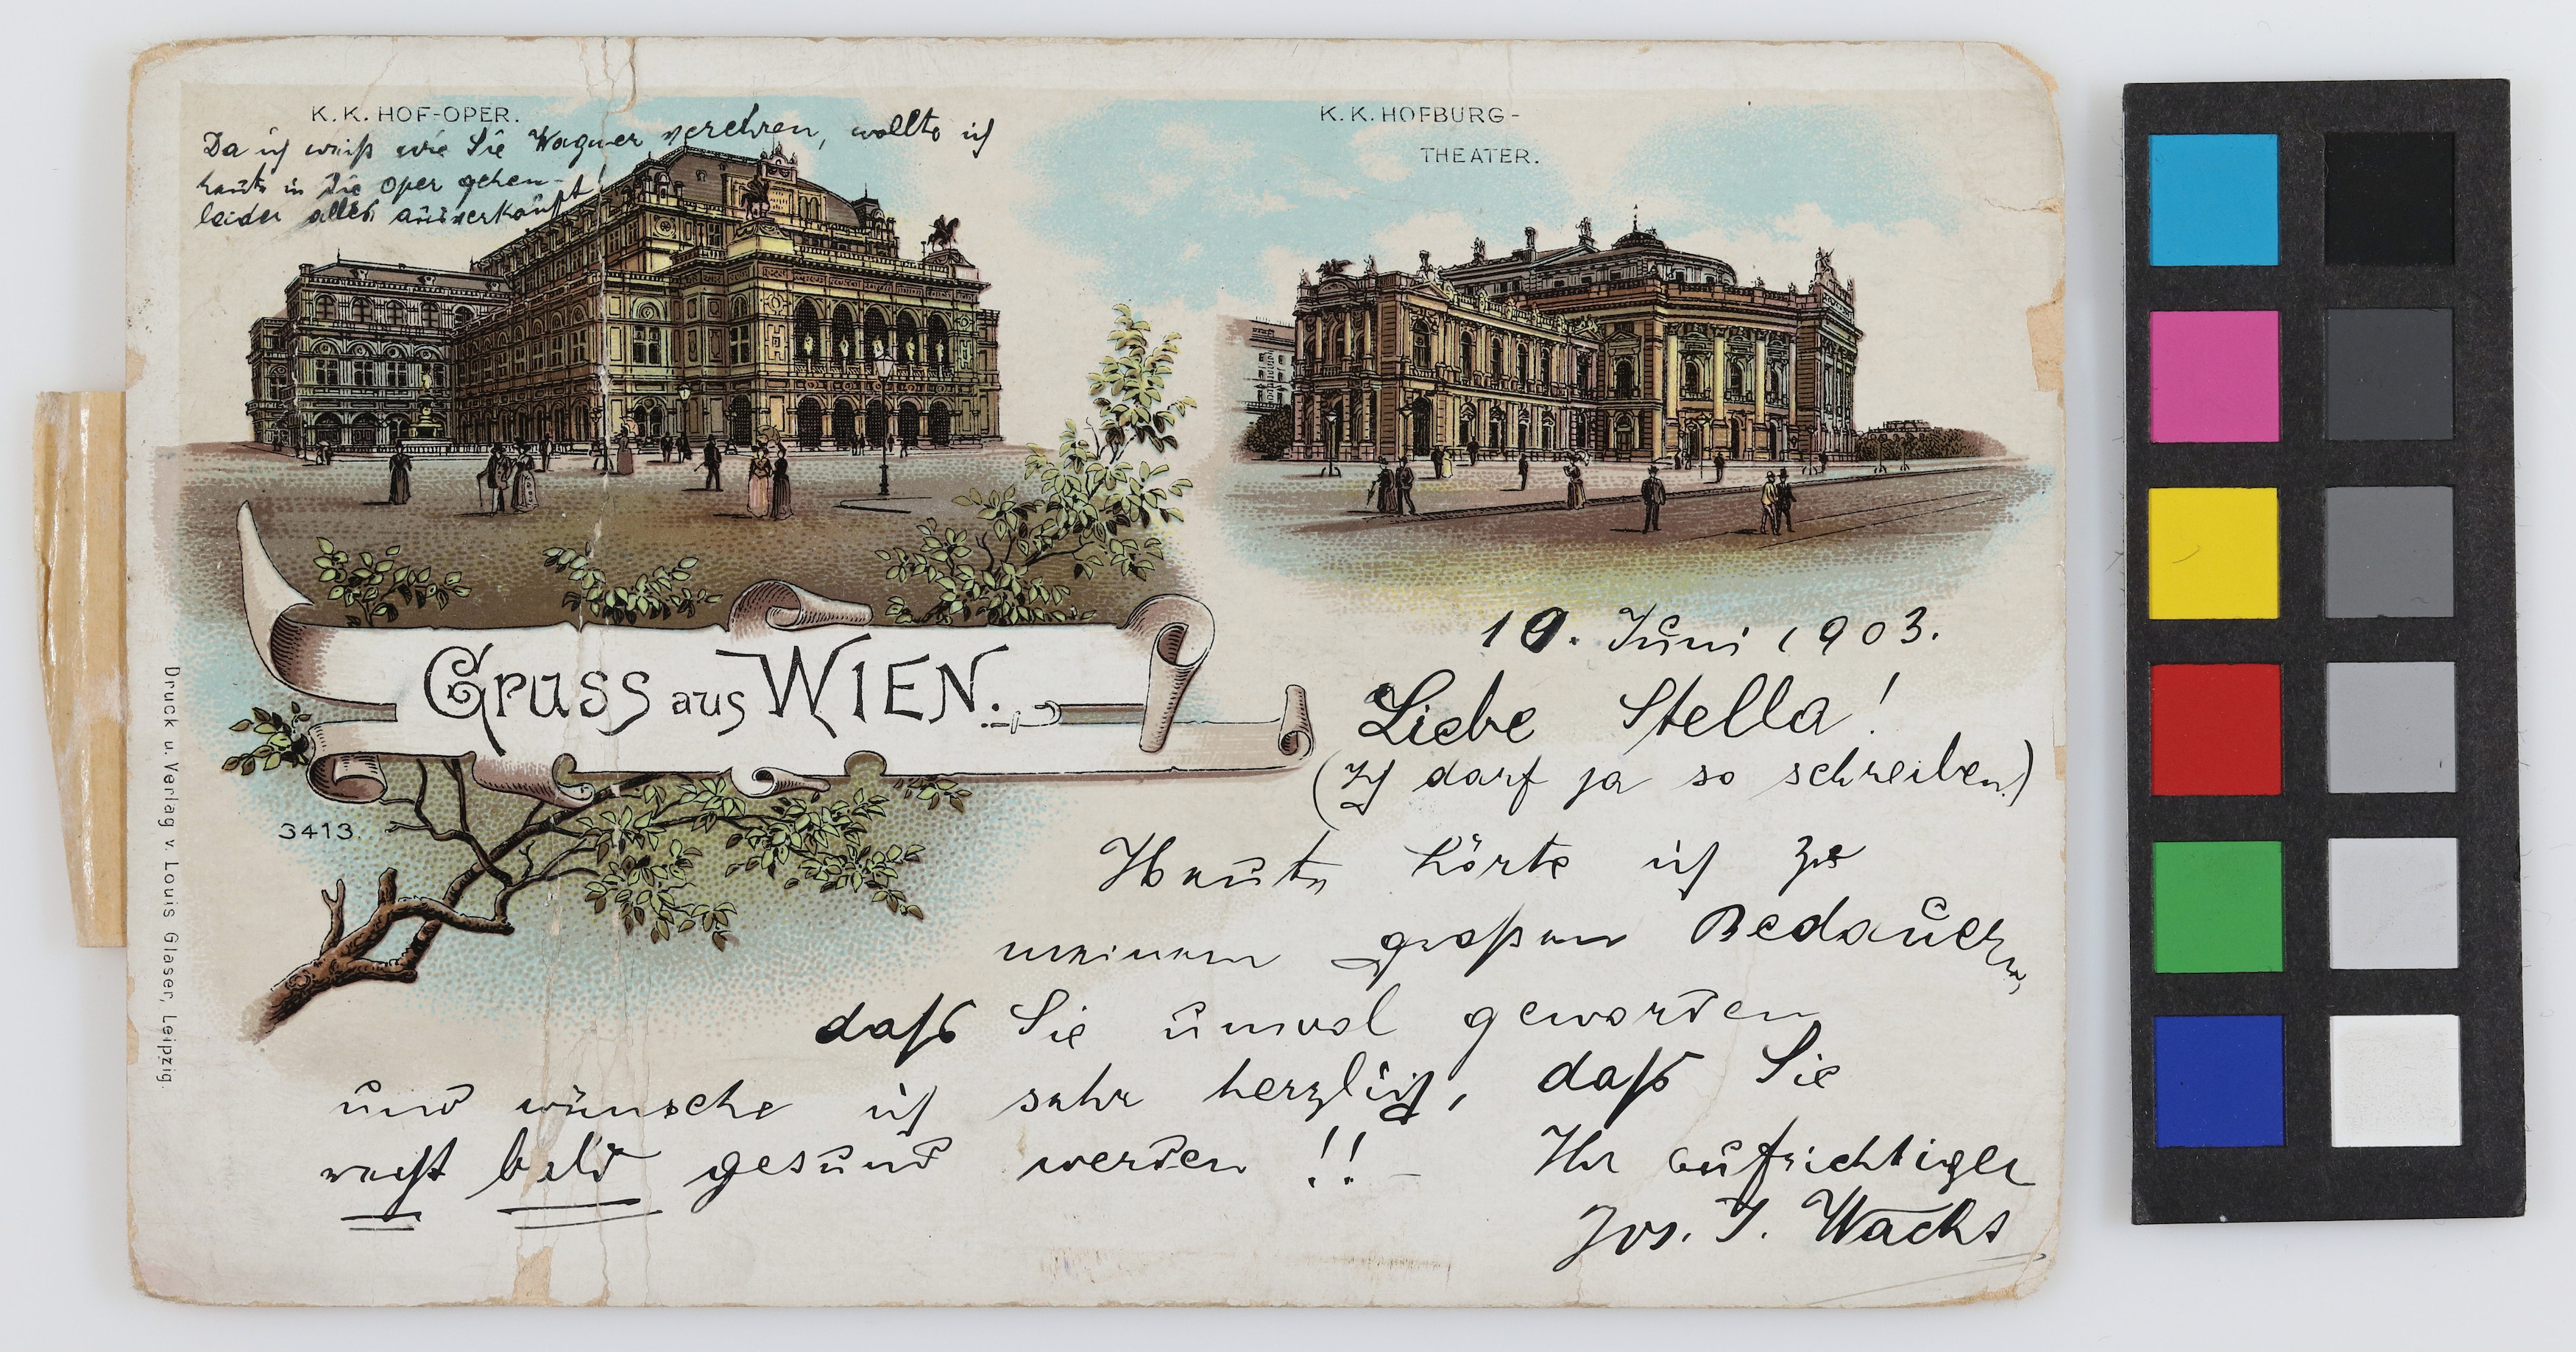 K. K. HOF-OPER.
Da ich weiß wie Sie Wagner verehren, wollte ich
heute in die Oper gehen -
leider alles ausverkauft!
K. K. HOFBURG-
THEATER.
Gruss aus WIEN.
3413.
Druck u. Verlag v. Louis Glaser, Leipzig.
10. Juni 1903.
Liebe Stella!
(Ich darf ja so schreiben.)
Heute hörte ich zu
meinem großen Bedauern,
daß Sie unwol geworden
und wünsche ich sehr herzlich, daß Sie
recht bald gesund werden!! - Ihr aufrichtiger
Jos. J. Wachs